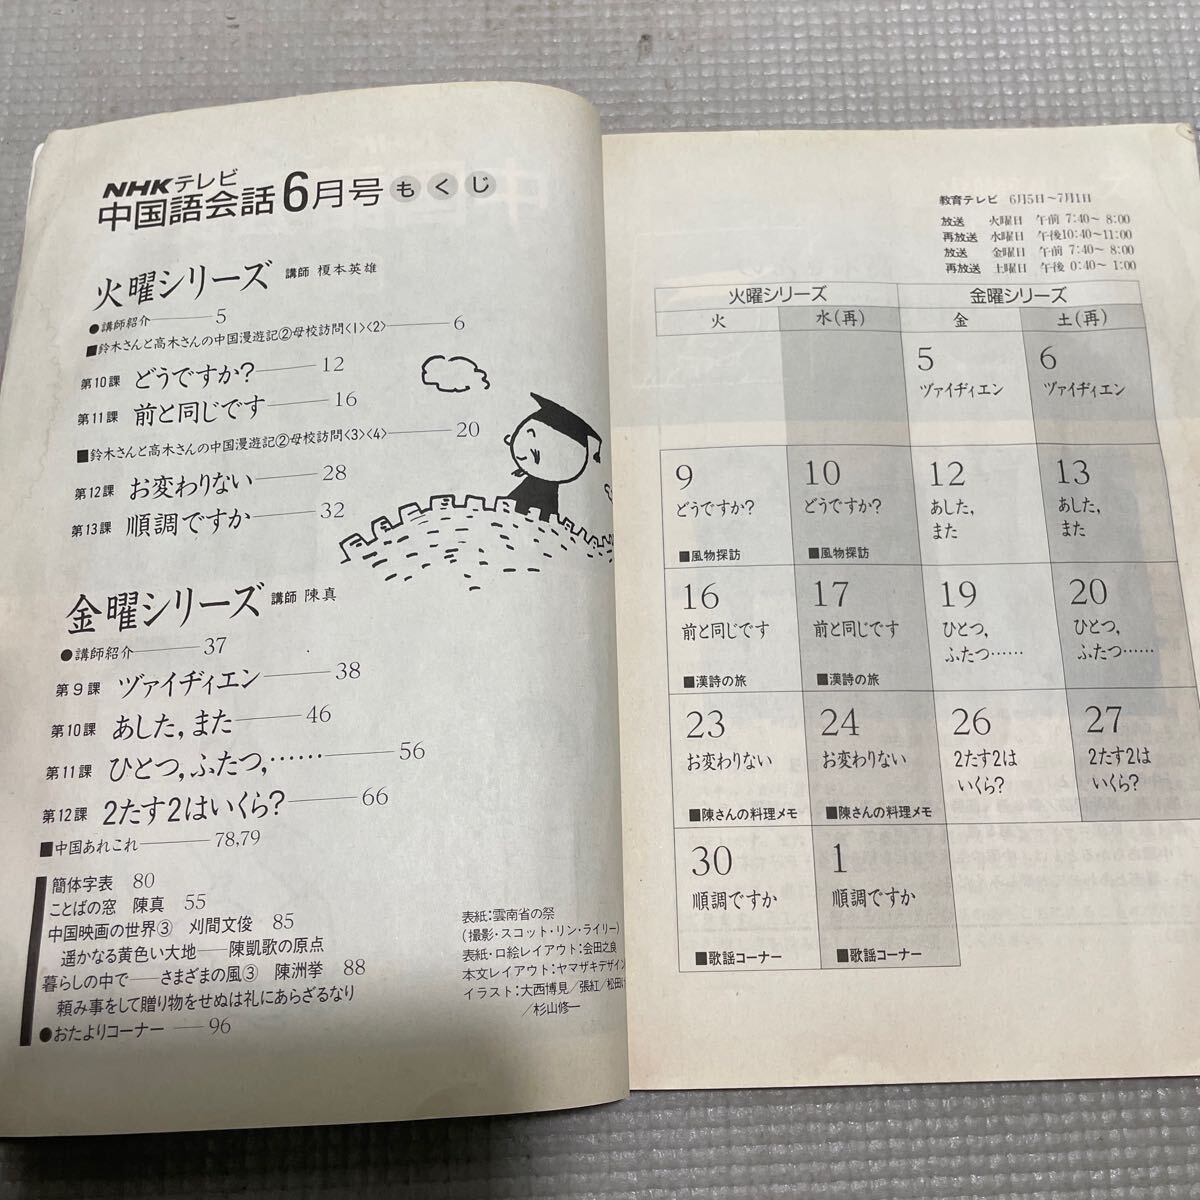 NHKテレビ
中国語会話6月号もくじ
火曜シリーズ 講師 榎本英雄
●講師紹介——5
■鈴木さんと高木さんの中国漫遊記②母校訪問〈1〉〈2〉——6
第10課 どうですか?——12
第11課 前と同じです——16
■鈴木さんと高木さんの中国漫遊記②母校訪問〈3〉〈4〉——20
第12課 お変わりない——28
第13課 順調ですか——32
金曜シリーズ 講師 陳真
●講師紹介——37
第9課 ヅァイヂィエン——38
第10課 あした,また——46
第11課 ひとつ,ふたつ,……——56
第12課 2たす2はいくら?——66
■中国あれこれ——78,79
簡体字表 80
ことばの窓 陳真 55
中国映画の世界③ 刈間文俊 85
遥かなる黄色い大地——陳凱歌の原点
暮らしの中で——さまざまの風③ 陳洲挙 88
頼み事をして贈り物をせぬは礼にあらざるなり
●おたよりコーナー——96
表紙:雲南省の祭
(撮影・スコット・リン・ライリー)
表紙・口絵レイアウト:会田之良
本文レイアウト:ヤマザキデザイン
イラスト:大西博見/張紅/松田
/杉山修一
教育テレビ 6月5日〜7月1日
放送 火曜日 午前 7:40〜 8:00
再放送 水曜日 午後10:40〜11:00
放送 金曜日 午前 7:40〜 8:00
再放送 土曜日 午後 0:40〜 1:00
火曜シリーズ 金曜シリーズ
火 水(再) 金 土(再)
5 6
ヅァイヂィエン ヅァイヂィエン
9 10 12 13
どうですか? どうですか? あした, あした,
また また
■風物探訪 ■風物探訪
16 17 19 20
前と同じです 前と同じです ひとつ, ひとつ,
ふたつ…… ふたつ……
■漢詩の旅 ■漢詩の旅
23 24 26 27
お変わりない お変わりない 2たす2は 2たす2は
いくら? いくら?
■陳さんの料理メモ ■陳さんの料理メモ
30 1
順調ですか 順調ですか
■歌謡コーナー ■歌謡コーナー